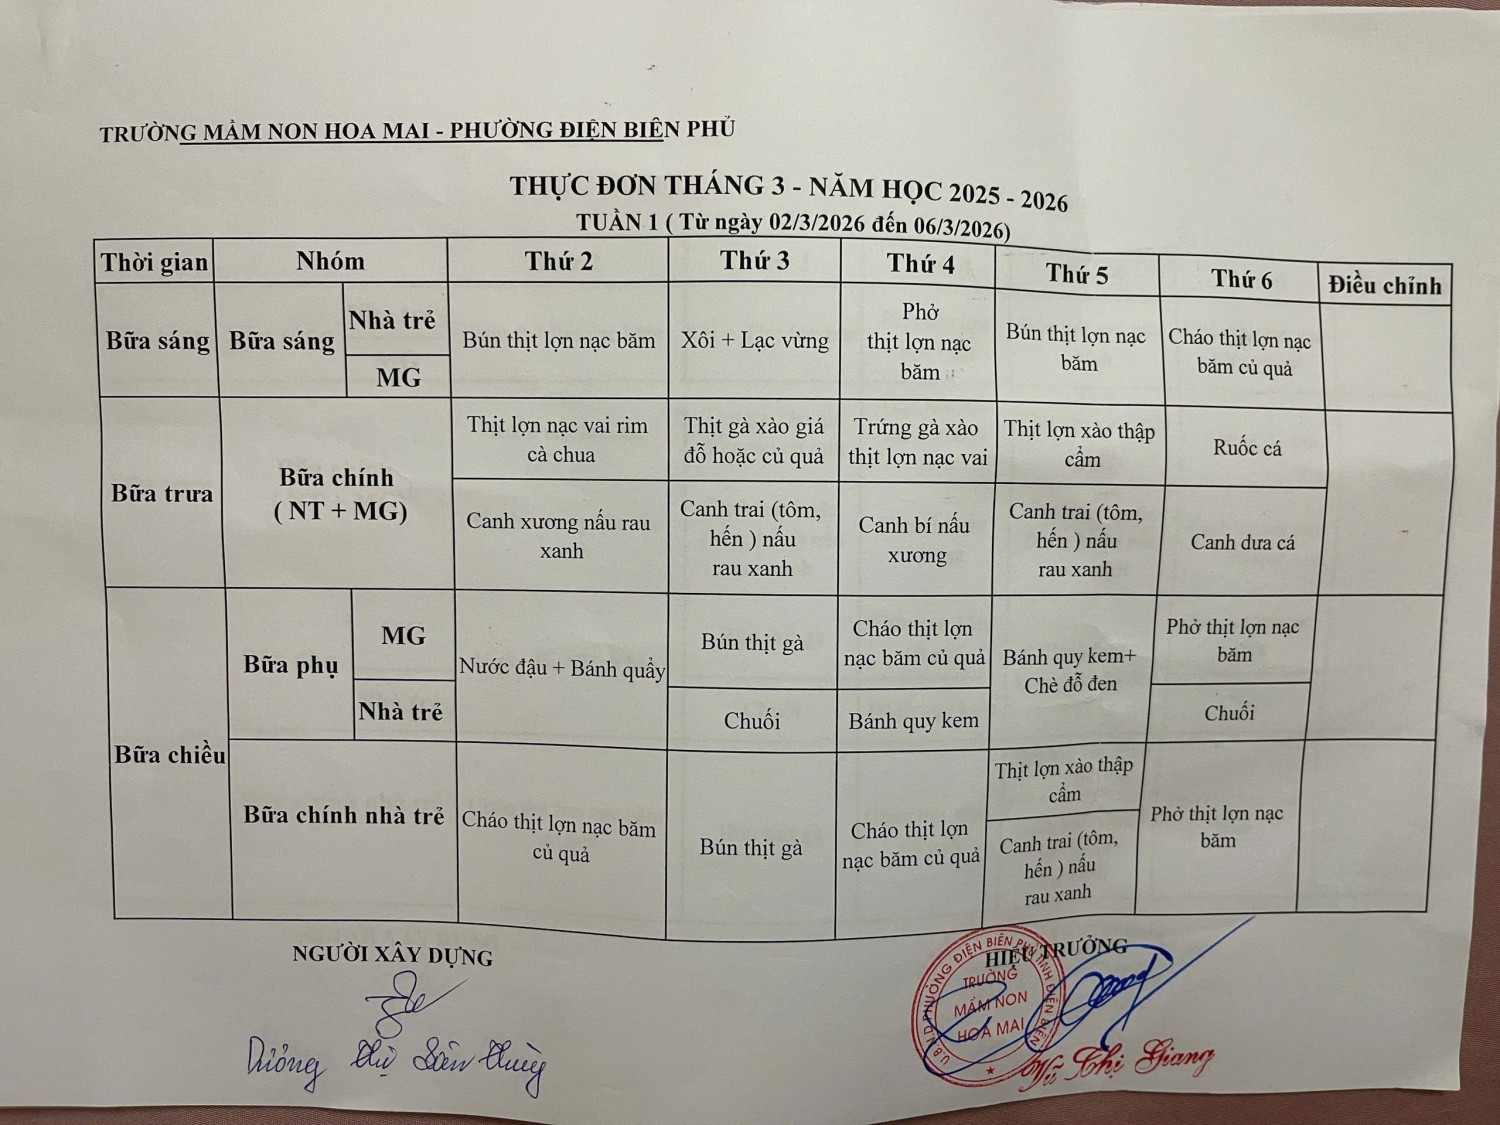 TRƯỜNG MẦM NON HOA MAI - PHƯỜNG ĐIỆN BIÊN PHỦ
THỰC ĐƠN THÁNG 3 - NĂM HỌC 2025 - 2026
TUẦN 1 ( Từ ngày 02/3/2026 đến 06/3/2026)
Thời gian Nhóm Thứ 2 Thứ 3 Thứ 4 Thứ 5 Thứ 6 Điều chỉnh
Bữa sáng
Bữa sáng
Nhà trẻ
MG
Bún thịt lợn nạc băm
Xôi + Lạc vừng
Phở
thịt lợn nạc
băm
Bún thịt lợn nạc
băm
Cháo thịt lợn nạc
băm củ quả
Bữa trưa
Bữa chính
( NT + MG)
Thịt lợn nạc vai rim
cà chua
Thịt gà xào giá
đỗ hoặc củ quả
Trứng gà xào
thịt lợn nạc vai
Thịt lợn xào thập
cẩm
Ruốc cá
Canh xương nấu rau
xanh
Canh trai (tôm,
hến ) nấu
rau xanh
Canh bí nấu
xương
Canh trai (tôm,
hến ) nấu
rau xanh
Canh dưa cá
Bữa chiều
Bữa phụ
MG
Nhà trẻ
Nước đậu + Bánh quẩy
Bún thịt gà
Cháo thịt lợn
nạc băm củ quả
Bánh quy kem+
Chè đỗ đen
Phở thịt lợn nạc
băm
Chuối
Bánh quy kem
Chuối
Bữa chính nhà trẻ
Cháo thịt lợn nạc băm
củ quả
Bún thịt gà
Cháo thịt lợn
nạc băm củ quả
Thịt lợn xào thập
cẩm
Canh trai (tôm,
hến ) nấu
rau xanh
Phở thịt lợn nạc
băm
NGƯỜI XÂY DỰNG
HIỆU TRƯỞNG
U.B.N.D PHƯỜNG ĐIỆN BIÊN PHỦ TỈNH ĐIỆN BIÊN
TRƯỜNG
MẦM NON
HOA MAI
Thị
Vũ Thị Giang